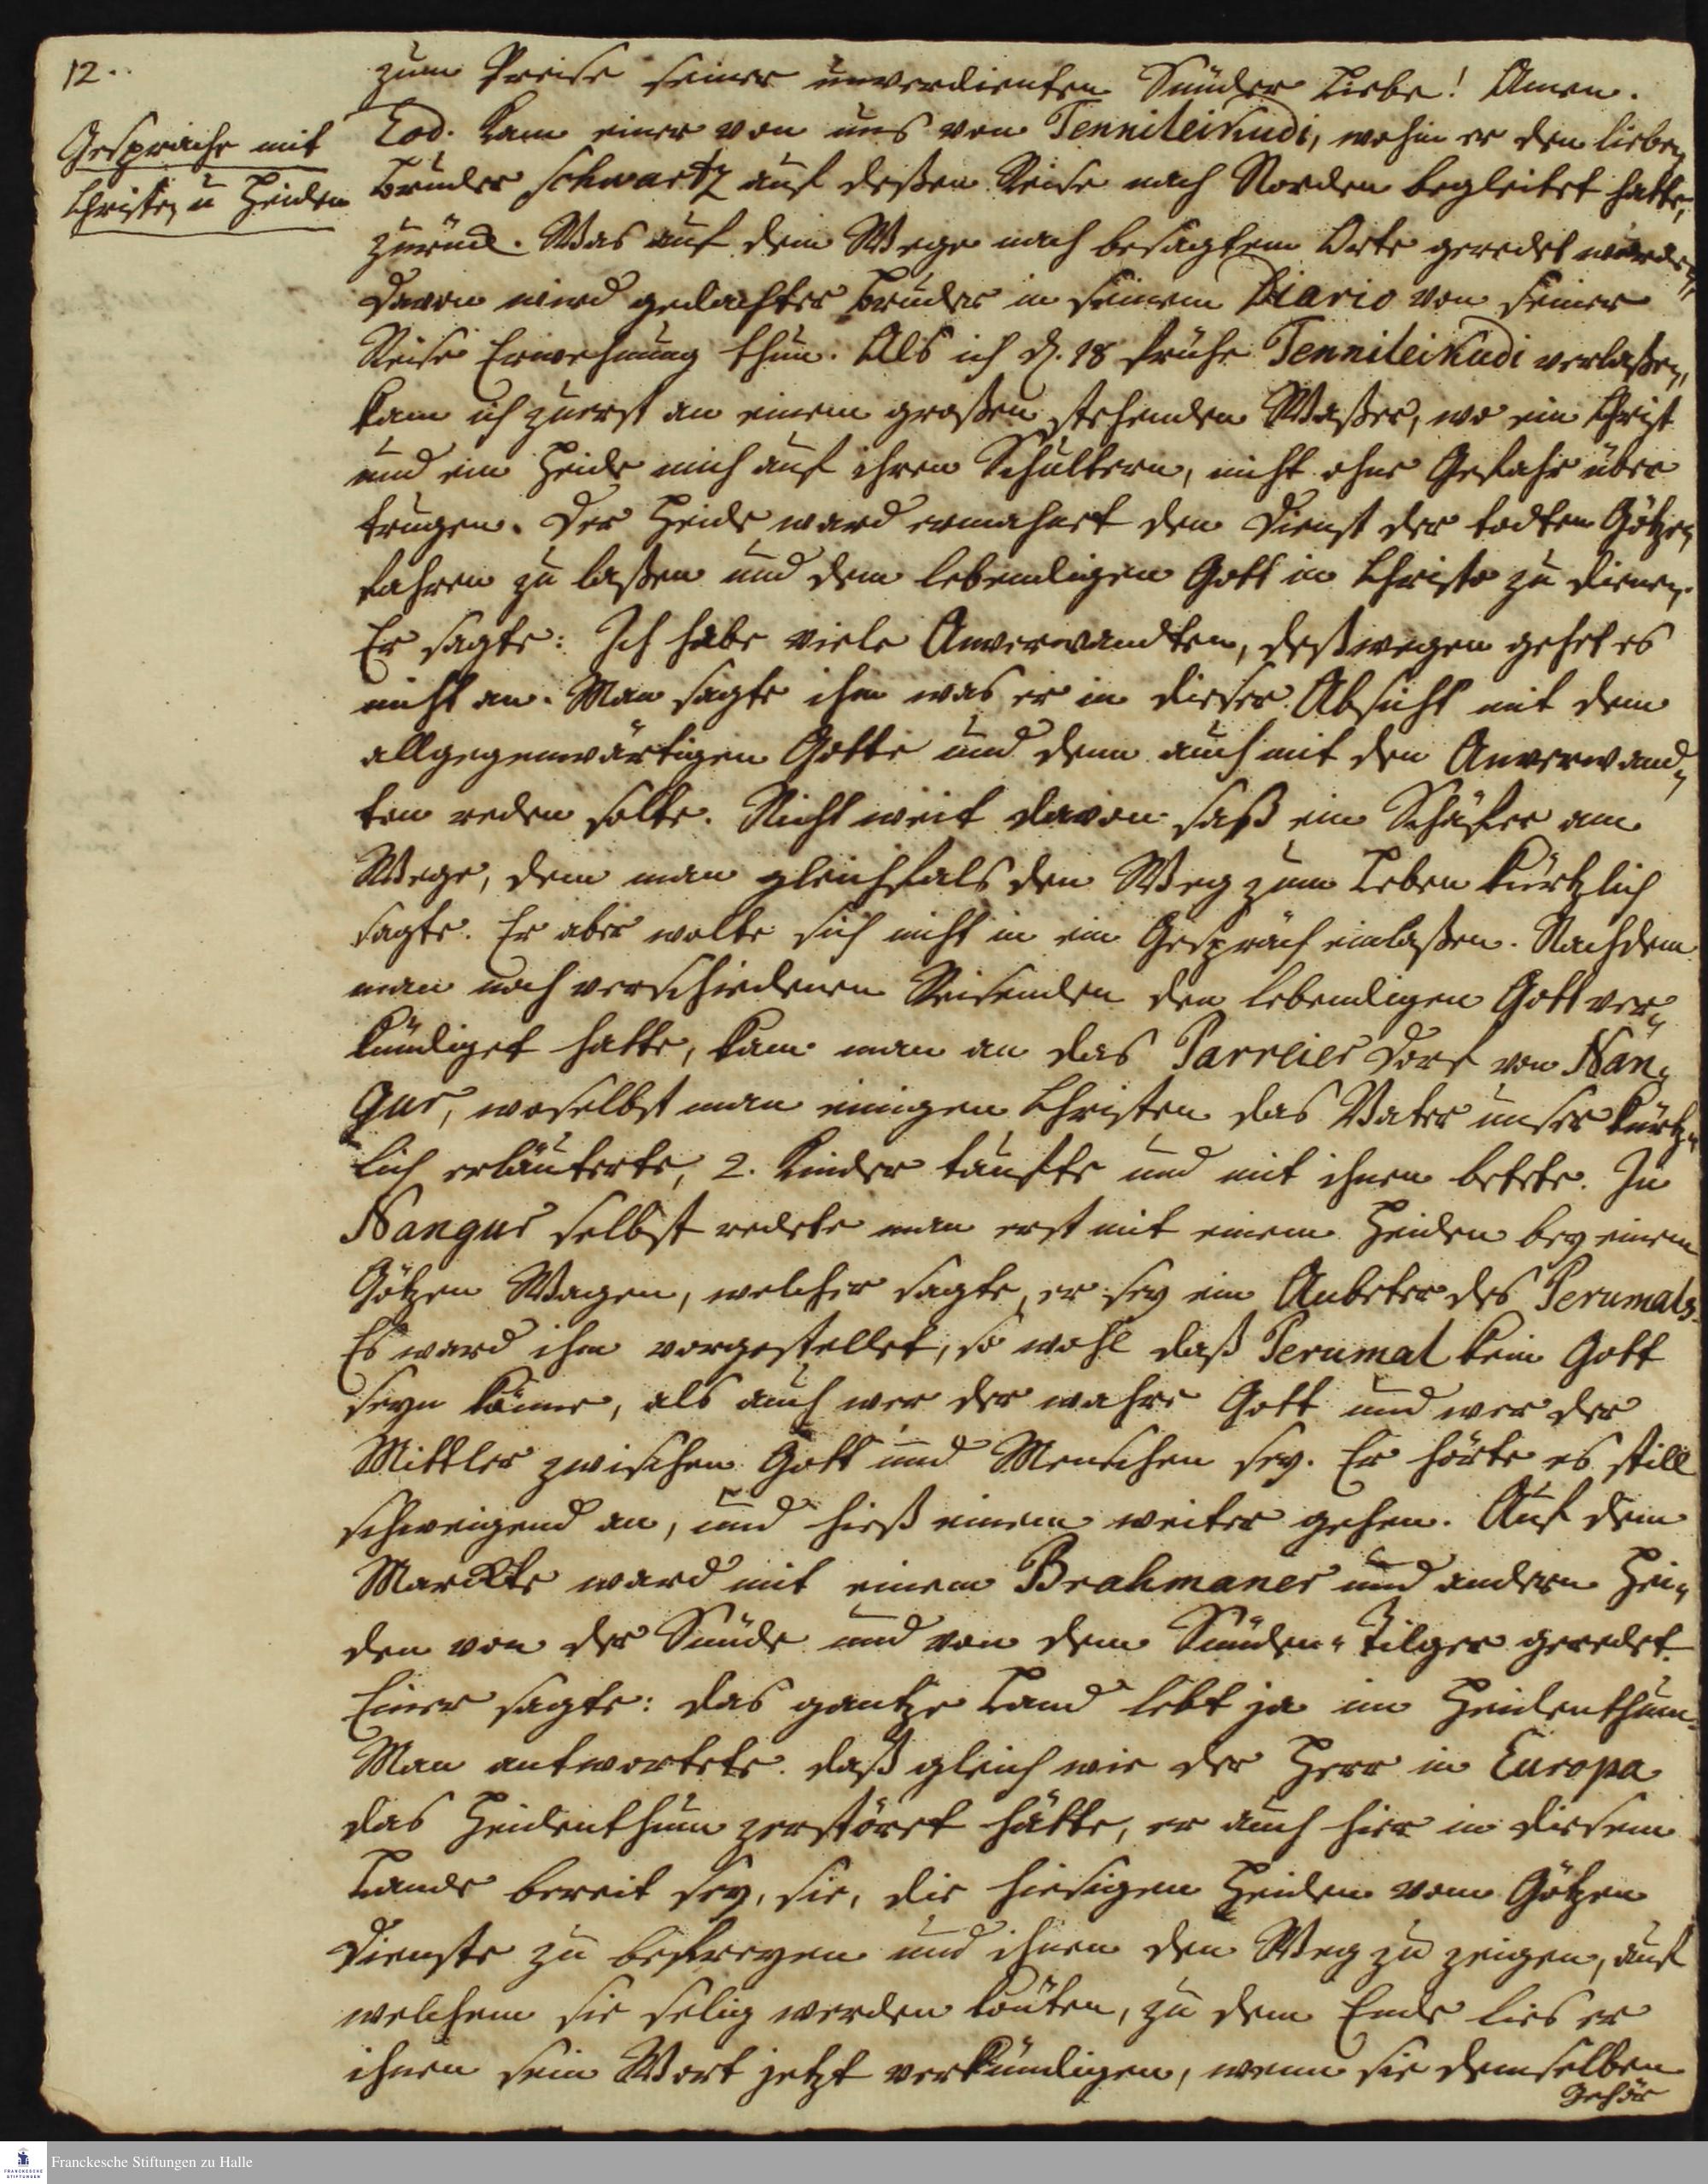 12.
Gespräche mit
Christen u Heiden
zum Preise seiner unverdienten Sünder Liebe! Amen.
Eod. kam einer von uns von Tennileikudi, wohin er den lieben
Bruder Schwartz auf deßen Reise nach Norden begleitet hatte,
zurück. Was auf dem Wege nach besagtem Orte geredet worden,
davon wird gedachter Bruder in seinem Diario von seiner
Reise Erwehnung thun. Als ich d. 18 frühe Tennileikudi verlaßen,
kam ich zuerst an einem großen stehenden Waßer, wo ein Christ
und ein Heide mich auf ihren Schultern, nicht ohne Gefahr über
trugen. Der Heide ward ermahnet den Dienst der todten Götzen
fahren zu laßen und dem lebendigen Gott in Christo zu dienen.
Er sagte: Ich habe viele Anverwandten, deßwegen gehet es
nicht an. Man sagte ihm was er in dieser Absicht mit dem
allgegenwärtigen Gotte und denn auch mit den Anverwand-
ten reden solte. Nicht weit davon saß ein Schäfer am
Wege, dem man gleichfals den Weg zum Leben kürtzlich
sagte. Er aber wolte sich nicht in ein Gespräch einlaßen. Nachdem
man noch verschiedenen Reisenden den lebendigen Gott ver-
kündiget hatte, kam man an das Parreier Dorf von Nan-
gur, woselbst man einigen Christen das Vater unser kürtz-
lich erläuterte, 2. Kinder taufte und mit ihnen betete. In
Nangur selbst redete man erst mit einem Heiden bey einem
Götzen Wagen, welcher sagte, er sey ein Anbeter des Perumals.
Es ward ihm vorgestellet, so wohl daß Perumal kein Gott
seyn könne, als auch wer der wahre Gott und wer der
Mittler zwischen Gott und Menschen sey. Er hörte es still
schweigend an, und hieß einem weiter gehen. Auf dem
Marckte ward mit einem Brahmaner und andern Hei-
den von der Sünde und von dem Sünden-Tilger geredet.
Einer sagte: das gantze Land lebt ja im Heidenthum.
Man antwortete. daß gleich wie der Herr in Europa
das Heidenthum zerstöret hätte, er auch hier in diesem
Lande bereit sey, sie, die hiesigen Heiden vom Götzen
Dienste zu befreyen und ihnen den Weg zu zeigen, auf
welchem sie selig werden könten, zu dem Ende lies er
ihnen sein Wort jetzt verkündigen, wenn sie demselben
Gehör
FRANCKESCHE STIFTUNGEN
Franckesche Stiftungen zu Halle